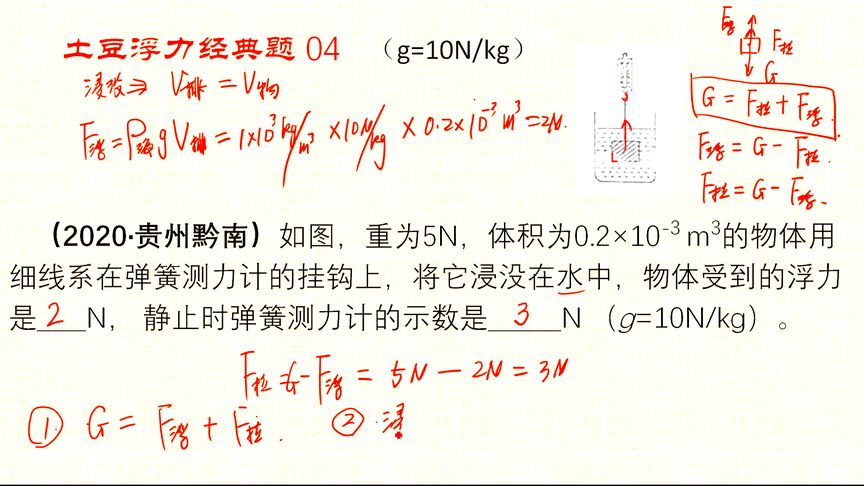 土豆浮力经典题 04 （g=10N/kg）
浸没⇒ V排 = V物
F浮=ρ液gV排 = 1×10³kg/m³ ×10N/kg × 0.2×10⁻³m³=2N.
F浮
F拉
G
G = F拉 + F浮.
F浮 = G - F拉.
F拉 = G - F浮.
（2020·贵州黔南）如图，重为5N，体积为0.2×10⁻³ m³的物体用
细线系在弹簧测力计的挂钩上，将它浸没在水中，物体受到的浮力
是 2 N， 静止时弹簧测力计的示数是 3 N （g=10N/kg）。
F拉=G-F浮 = 5N - 2N = 3N
① G = F浮 + F拉. ② 浸